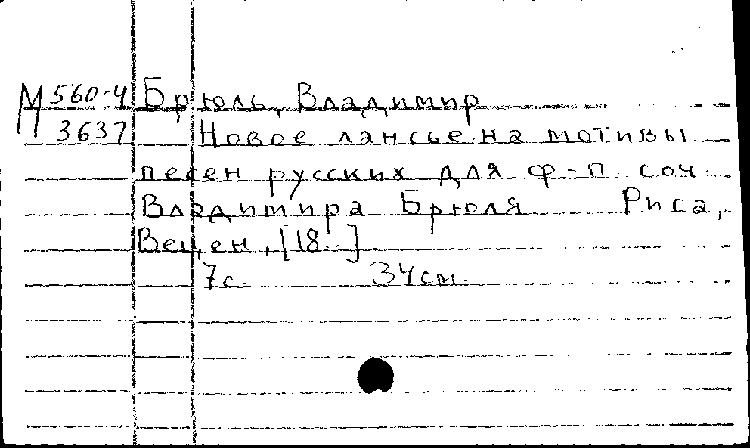 М 560-4 Брюль, Владимир
3637 Новое лансье на мотивы
песен русских для ф-п. соч.
Владимира Брюля Рига,
Вецен, [18 ]
7с. 34см.